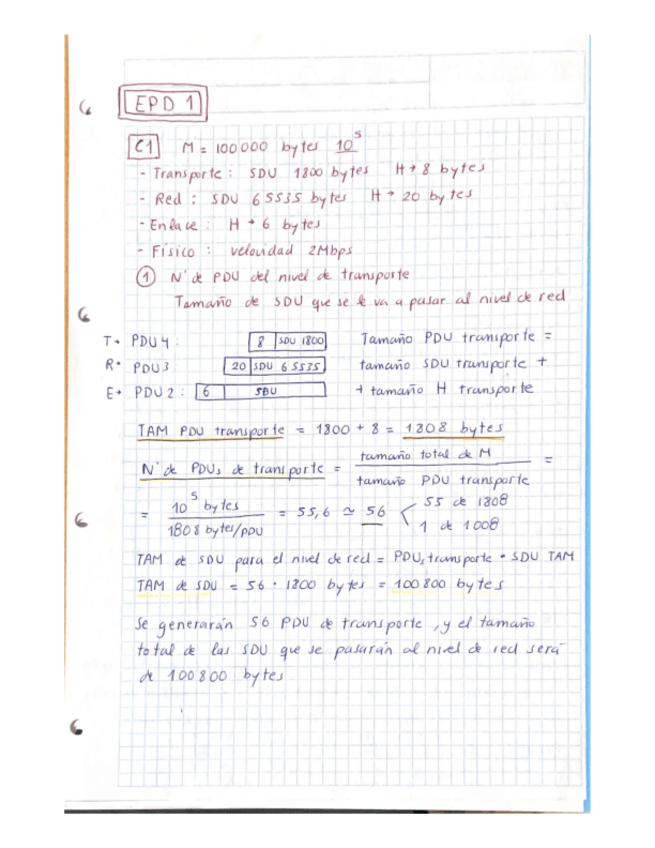 EPD 1
C1 M = 100000 bytes 10^5
- Transporte: SDU 1800 bytes H→ 8 bytes
- Red: SDU 65535 bytes H→ 20 bytes
- Enlace: H→ 6 bytes
- Físico: velocidad 2Mbps
① Nº de PDU del nivel de transporte
Tamaño de SDU que se le va a pasar al nivel de red
T→ PDU4: 8 | SDU 1800
R→ PDU3 20 | SDU 65535
E→ PDU2: 6 | SDU
Tamaño PDU transporte =
tamaño SDU transporte +
+ tamaño H transporte
TAM PDU transporte = 1800 + 8 = 1808 bytes
Nº de PDUs de transporte = tamaño total de M / tamaño PDU transporte =
= 10^5 bytes / 1808 bytes/PDU = 55,6 ≃ 56 < 55 de 1808
1 de 1008
TAM de SDU para el nivel de red = PDUs transporte · SDU TAM
TAM de SDU = 56 · 1800 bytes = 100800 bytes
Se generarán 56 PDU de transporte, y el tamaño
total de las SDU que se pasarán al nivel de red será
de 100800 bytes